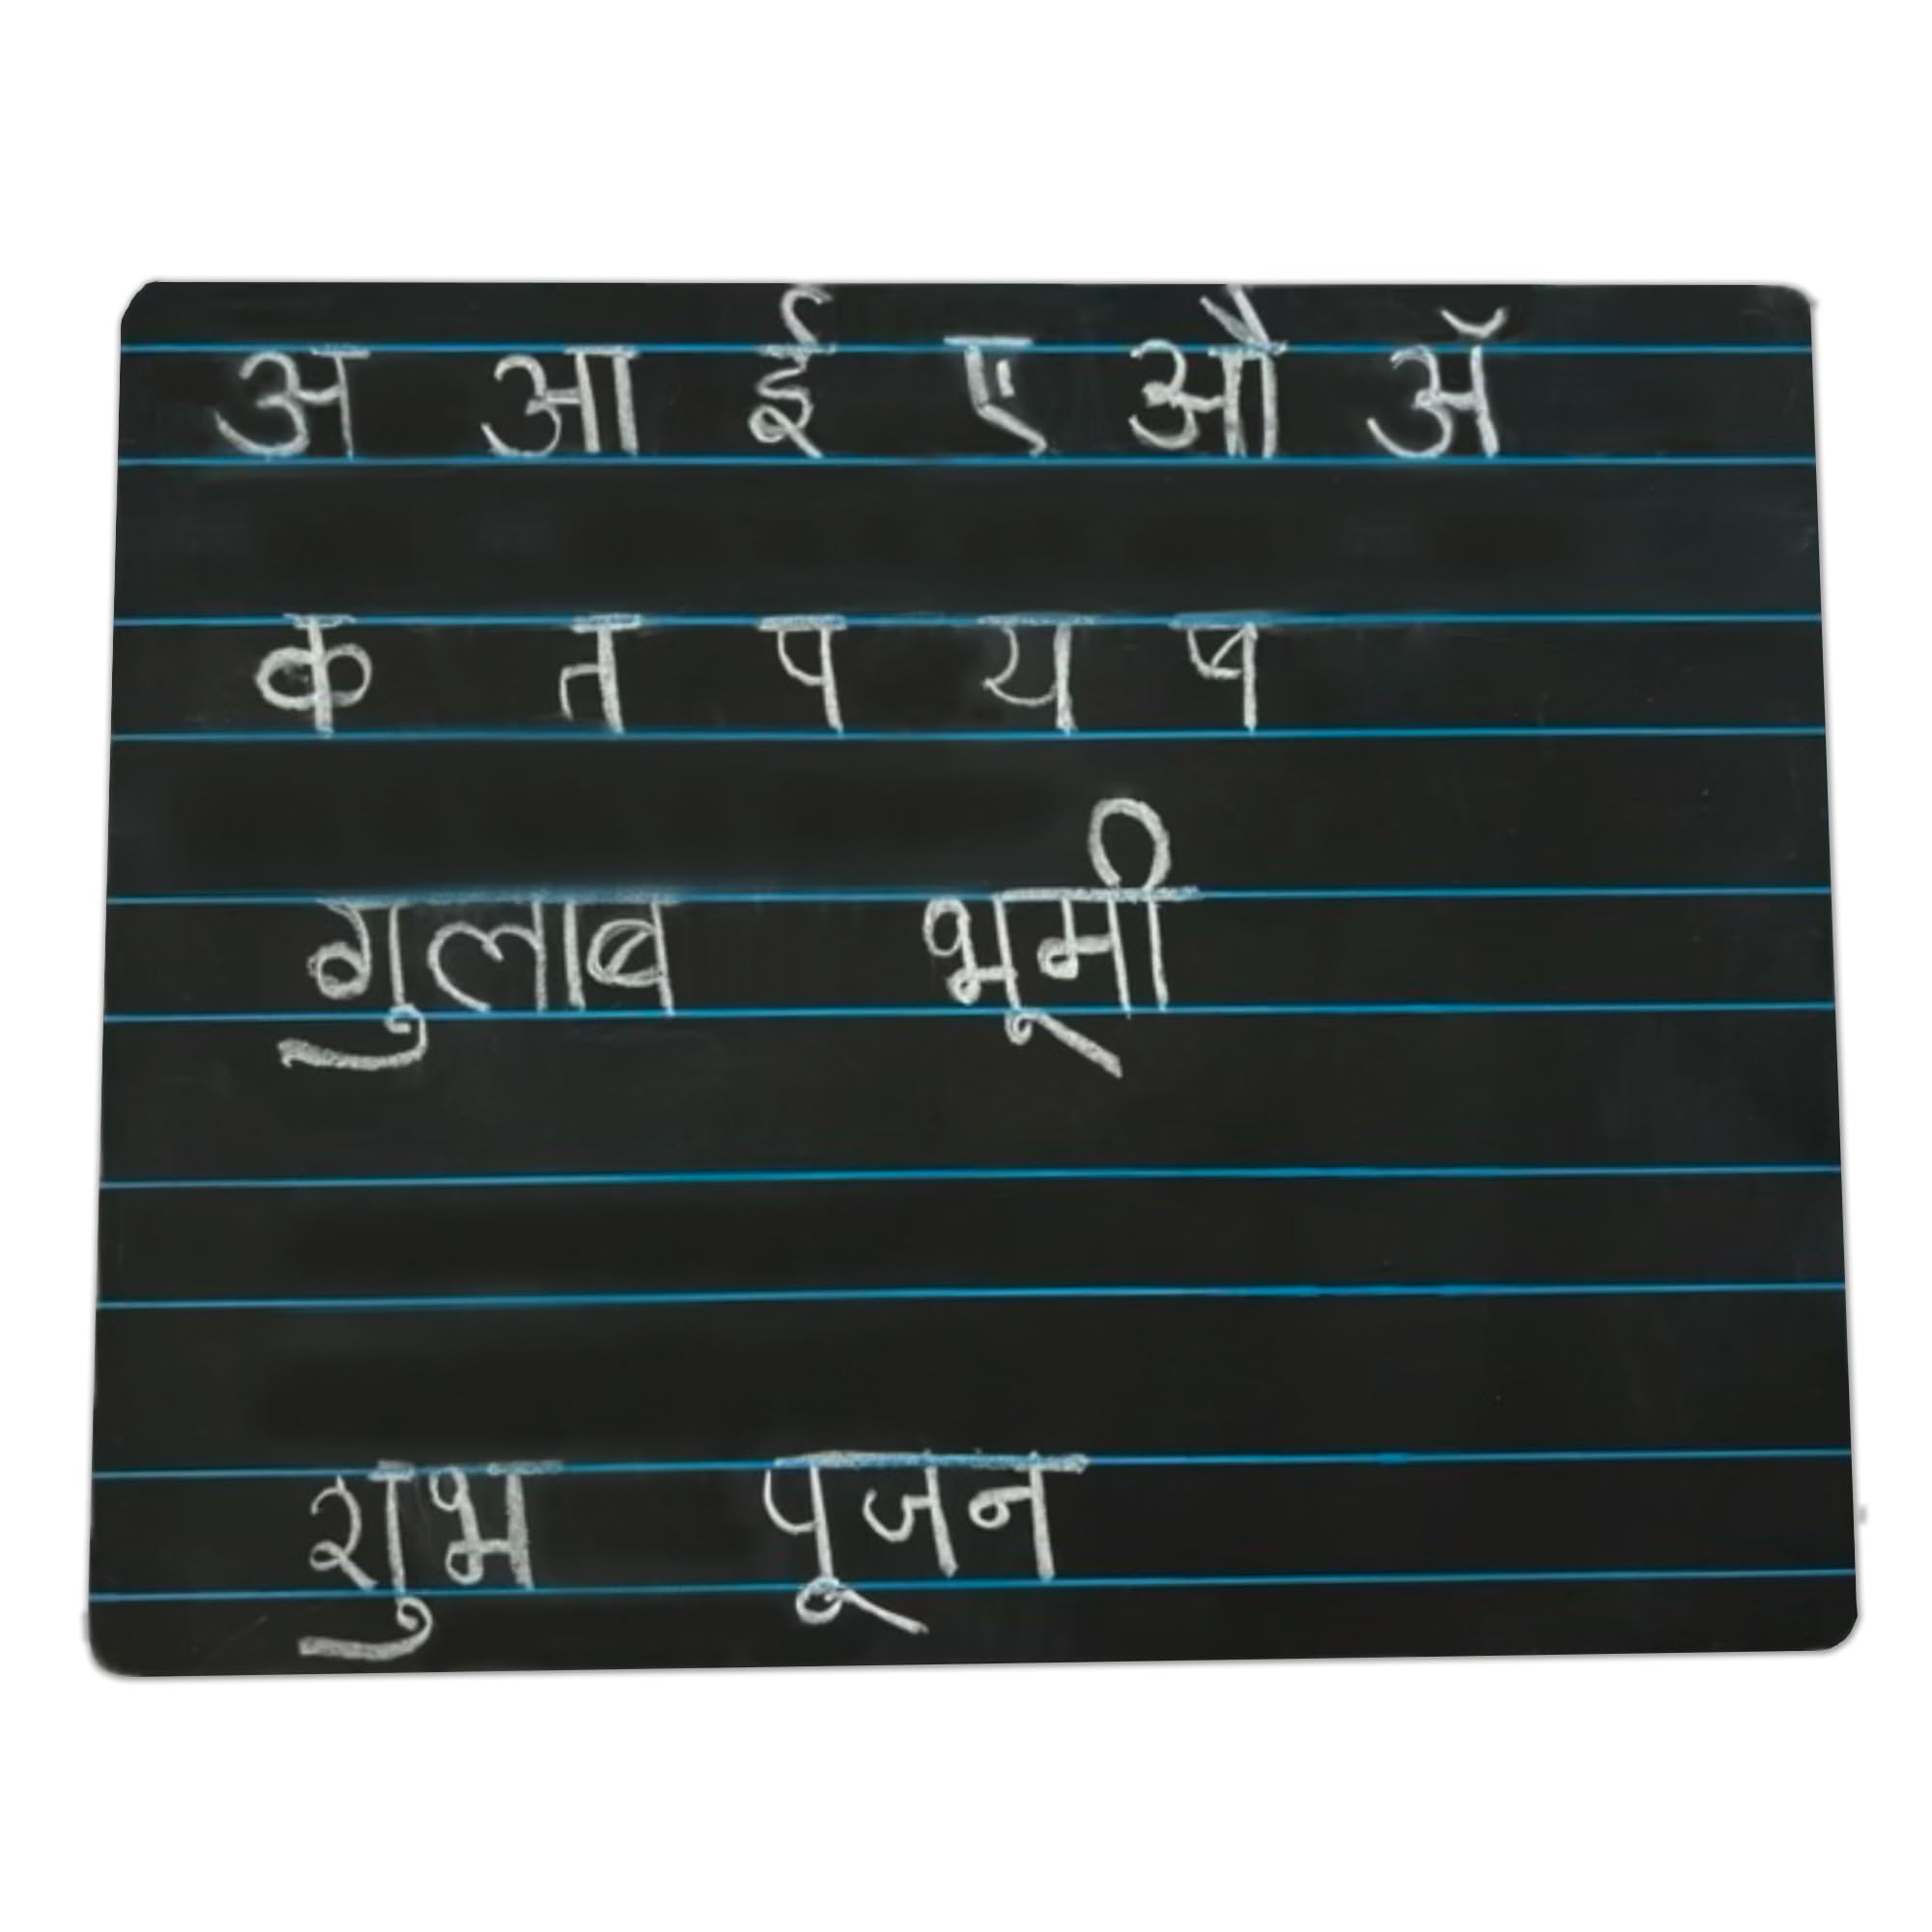 अ आ ई ए औ ॲ
क त प य ष
गुलाब भूमी
शुभ पूजन